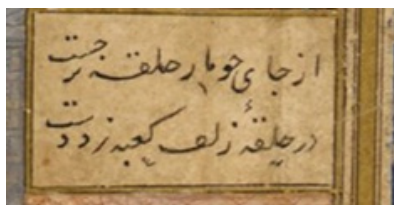 از جای چو مار حلقه برجست
در حلقهٔ زلف کعبه زد دست